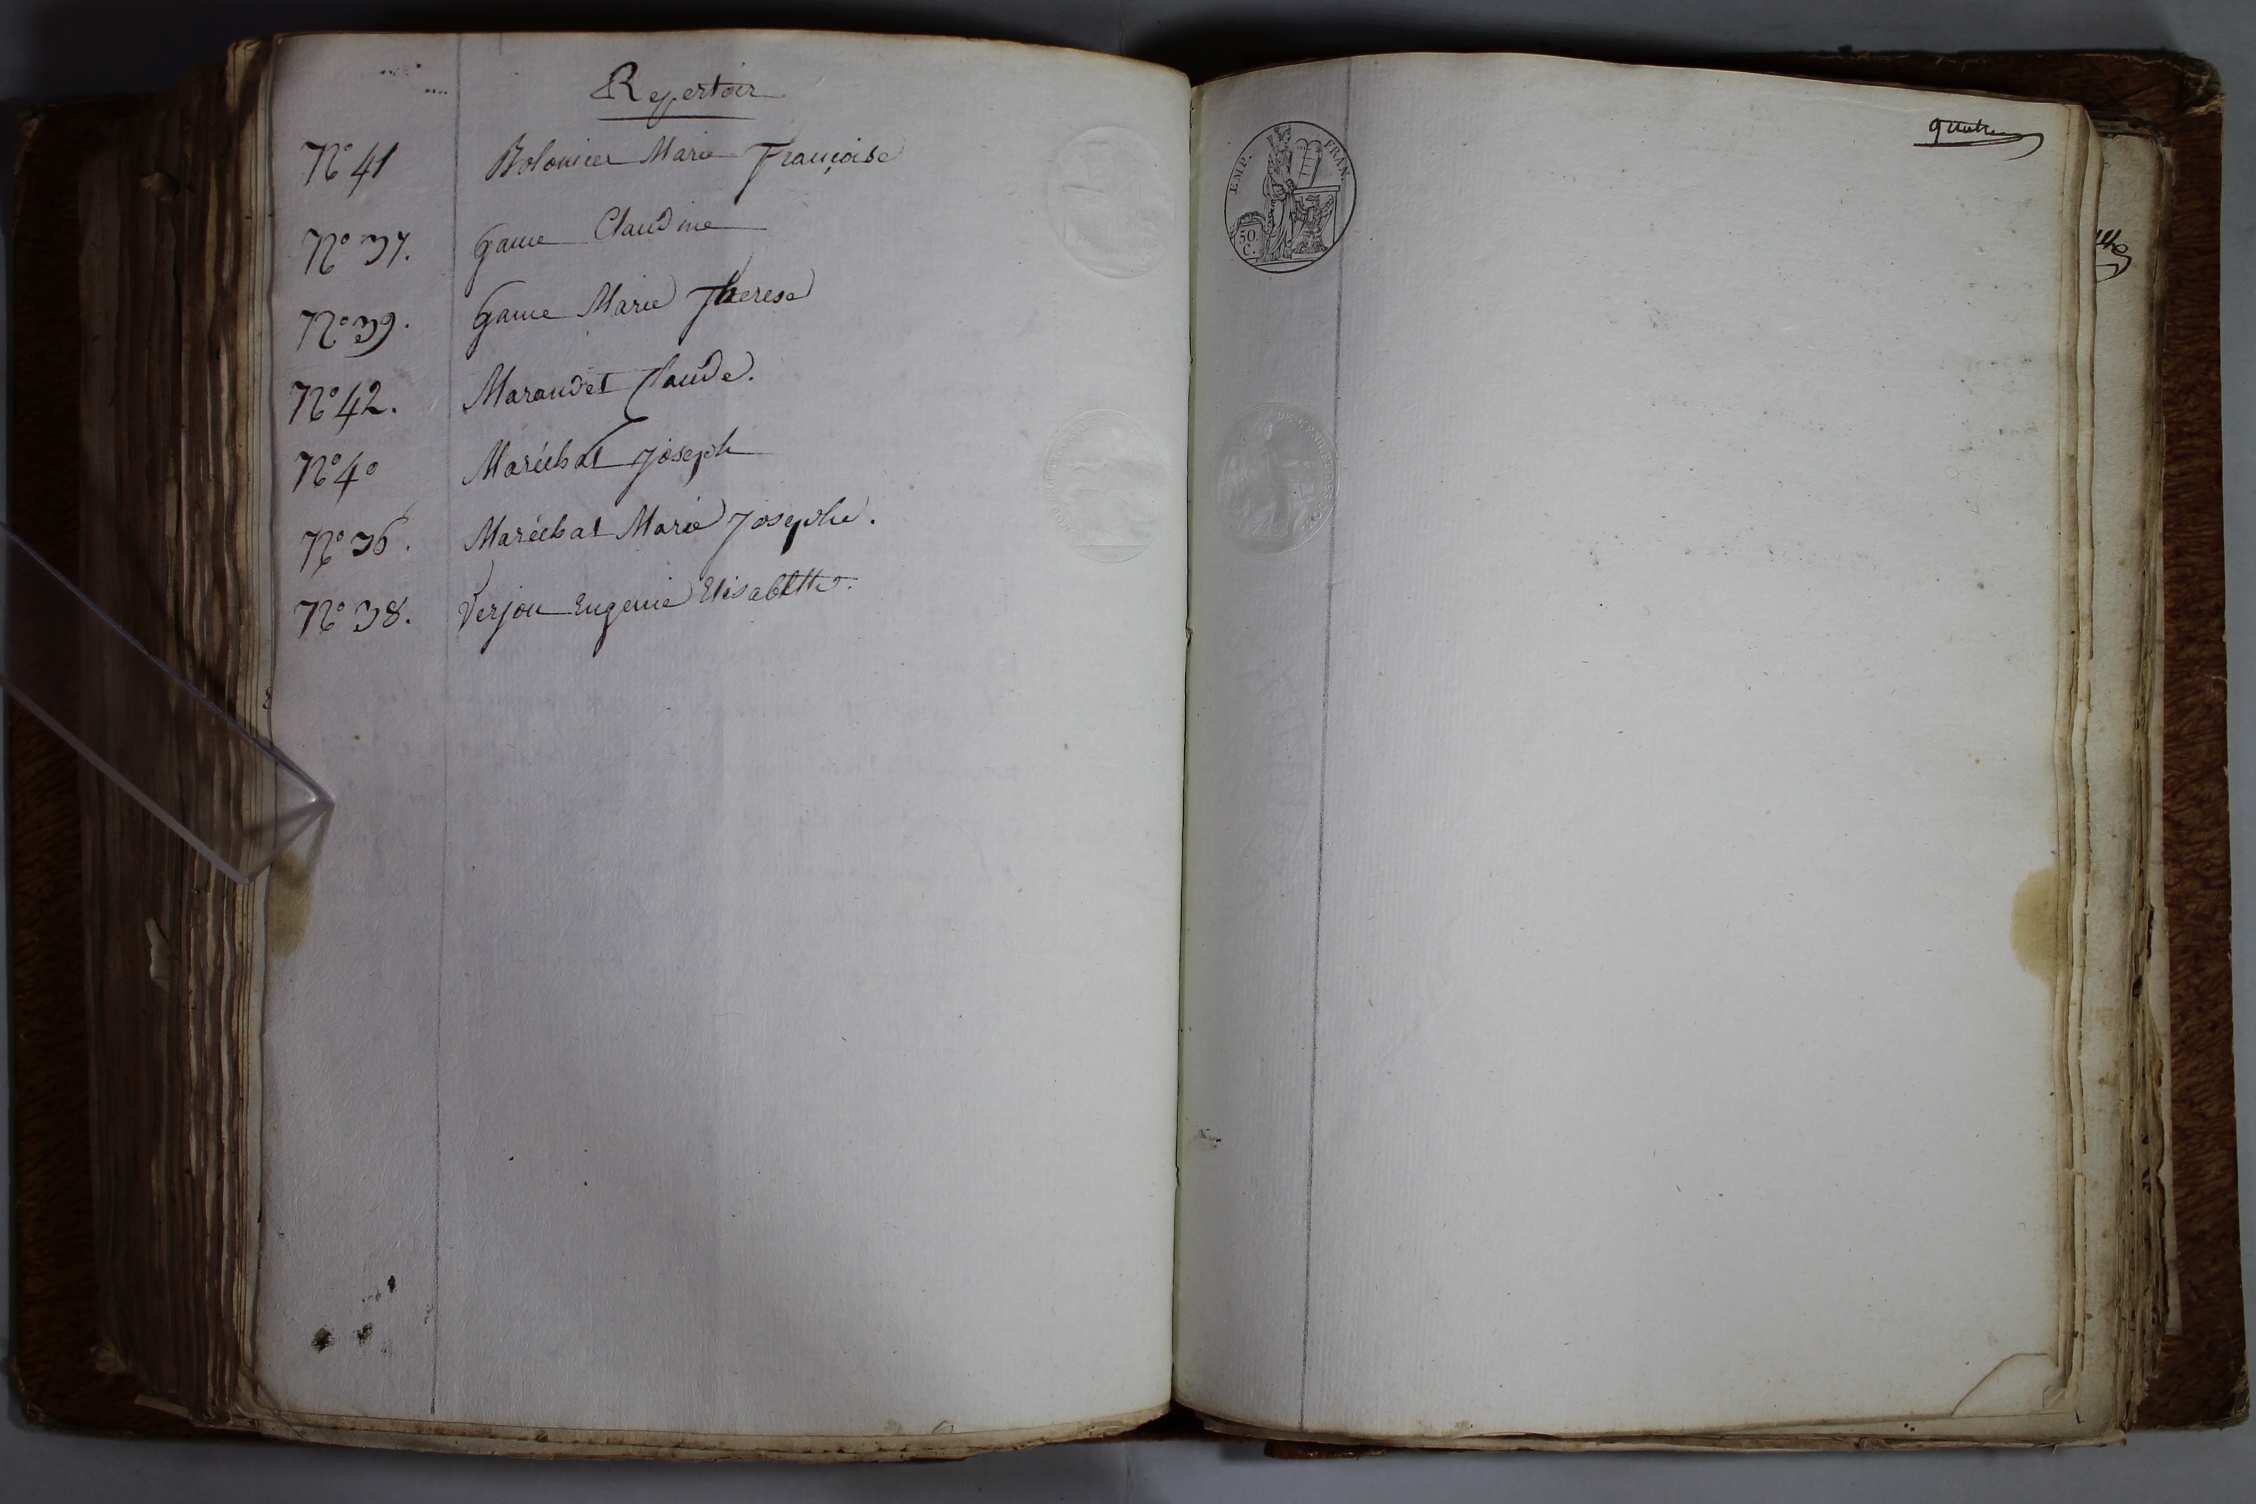 Repertoir
N° 41 Bolomier Marie Françoise
N° 37. Game Claudine
N° 39. Game Marie Therese
N° 42. Maraudet Claude.
N° 40 Maréchal Joseph
N° 36. Maréchal Marie Josephe.
N° 38. Verjou Eugenie Elisabeth.
EMP. FRAN.
50 C.